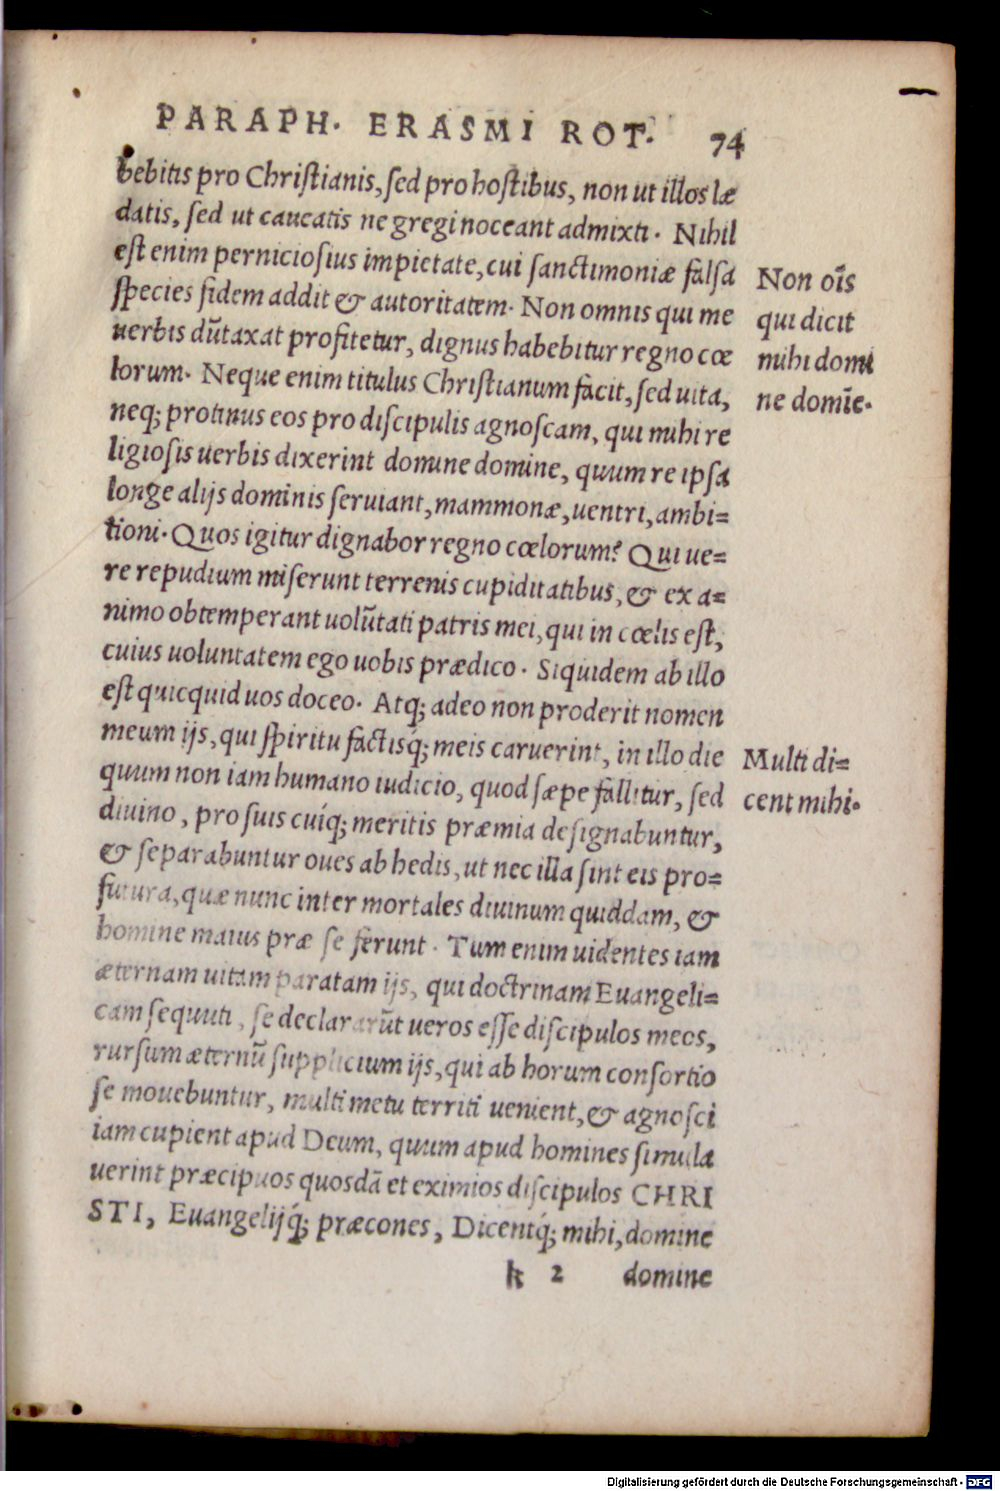 PARAPH. ERASMI ROT. 74
bebitis pro Chriſtianis, ſed pro hoſtibus, non ut illos læ
datis, ſed ut caueatis ne gregi noceant admixti. Nihil
eſt enim perniciosius impietate, cui ſanctimoniæ falſa
ſpecies fidem addit & autoritatem. Non omnis qui me
uerbis dūtaxat profitetur, dignus habebitur regno cœ
lorum. Neque enim titulus Chriſtianum facit, ſed uita,
neq; protinus eos pro diſcipulis agnoſcam, qui mihi re
ligioſis uerbis dixerint domine domine, quum re ipſa
longe alijs dominis ſeruiant, mammonæ, uentri, ambi=
tioni. Quos igitur dignabor regno cœlorum? Qui ue=
re repudium miſerunt terrenis cupiditatibus, & ex a=
nimo obtemperant uolūtati patris mei, qui in cœlis eſt,
cuius uoluntatem ego uobis prædico. Siquidem ab illo
eſt quicquid uos doceo. Atq; adeo non proderit nomen
meum ijs, qui ſpiritu factisq́; meis caruerint, in illo die
quum non iam humano iudicio, quod ſæpe fallitur, ſed
diuino, pro ſuis cuiq́; meritis præmia deſignabuntur,
& ſeparabuntur oues ab hedis, ut nec illa ſint eis pro=
futura, quæ nunc inter mortales diuinum quiddam, &
homine maius præ ſe ferunt. Tum enim uidentes iam
æternam uitam paratam ijs, qui doctrinam Euangeli=
cam ſequuti, ſe declararūt ueros eſſe diſcipulos meos,
rurſum æternū ſupplicium ijs, qui ab horum conſortio
ſe mouebuntur, multi metu territi uenient, & agnoſci
iam cupient apud Deum, quum apud homines ſimula
uerint præcipuos quosdā et eximios diſcipulos CHRI
STI, Euangelijq́; præcones, Dicentq́; mihi, domine
k 2 domine
Non oīs
qui dicit
mihi domi
ne domīe.
Multi di=
cent mihi.
Digitalisierung gefördert durch die Deutsche Forschungsgemeinschaft - DFG